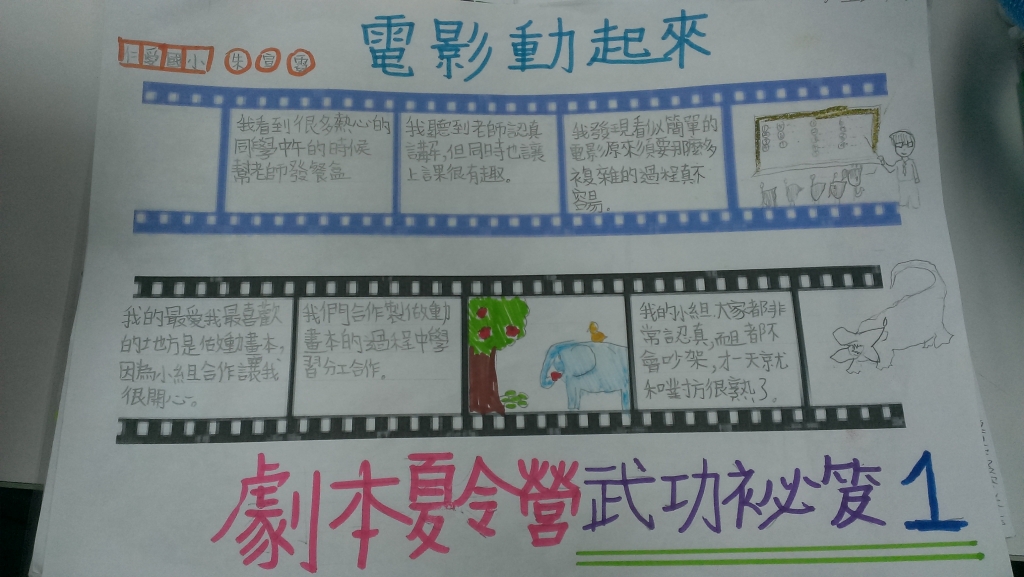 電影動起來
仁愛國小 朱宣
我看到很多熱心的
同學中午的時候
幫老師發餐盒
我聽到老師認真
講解,但同時也讓
上課很有趣。
我發現看似簡單的
電影原來須要那麼多
複雜的過程真不
容易。
我的最愛我最喜歡
的地方是做動畫本,
因為小組合作讓我
很開心。
我們合作製做動
畫本的過程中學
習分工合作。
我的小組大家都非
常認真,而且都不
會吵架,才一天就
和對方很熟了。
劇本夏令營武功祕笈1